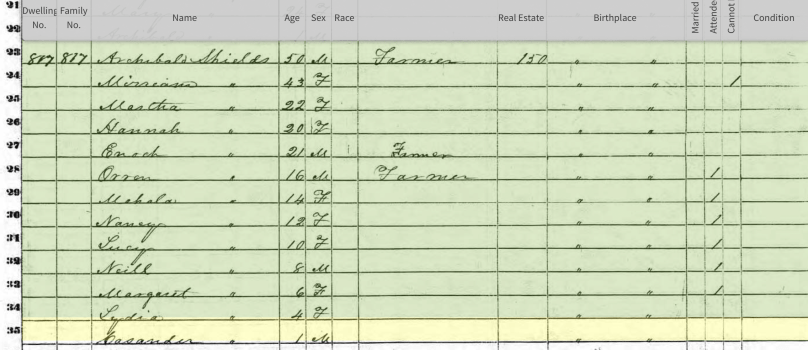 Dwelling No. Family No. Name Age Sex Race Real Estate Birthplace Married Attende Cannot Condition
21
22
23 817 817 Archibald Shields 50 M Farmer 150 " "
24 Mirriam " 43 F " " /
25 Martha " 22 F " "
26 Hannah " 20 F " "
27 Enoch " 21 M Farmer " "
28 Orren " 16 M Farmer " " /
29 Mahala " 14 F " " /
30 Nancy " 12 F " " /
31 Lucy " 10 F " " /
32 Neill " 8 M " " /
33 Margaret " 6 F " " /
34 Lydia " 4 F " "
35 Casander " 1 M " "